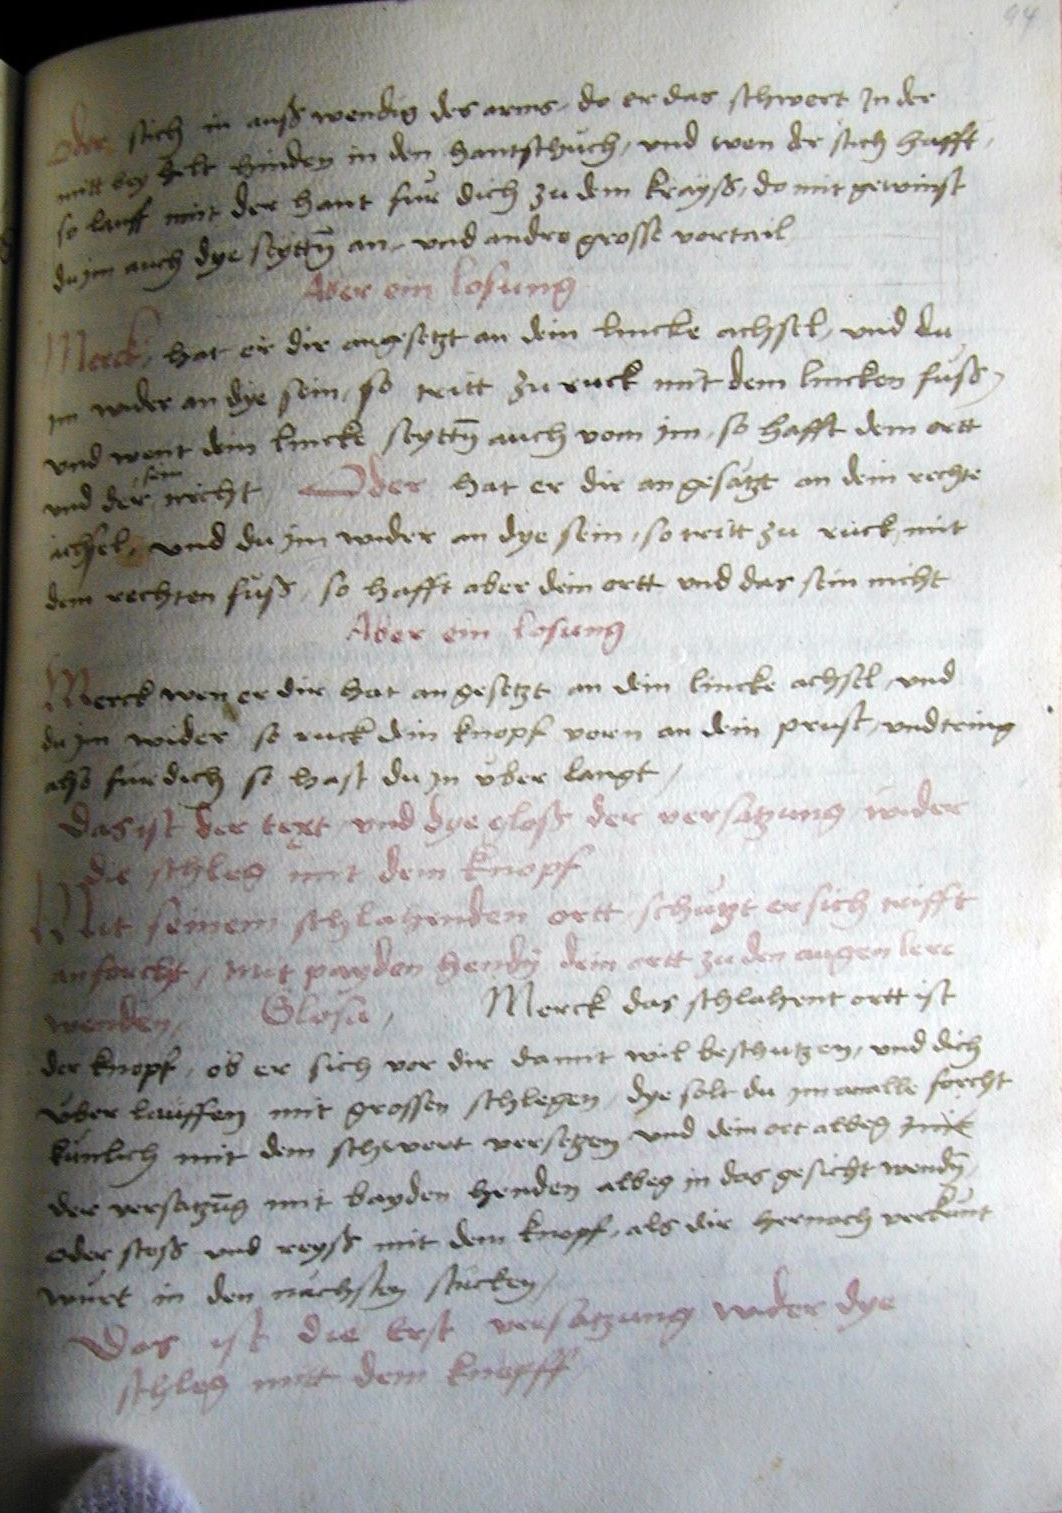 94
Oder stich in auß wendig des arms, do er das schwert In der
mitt bey helt hinden in den hantschuch, vnd wen der stich hafft,
so lauff mit der hant fur dich zu dem krayß, do mit gewinst
du jm auch dye seyttn̄ an, vnd andro grosse vortail
Aber ein losung
Merck, hat er dir angesetzt an dein lincke achsel, vnd du
jm wider an dye sein, so tritt zu ruck mit dem lincken fuß,
vnd went dein lincke seyttn̄ auch vom jm, so hafft dein ortt
vnd der sein nicht Oder hat er dir an gesatzt an dein rechte
achsel, vnd du jm wider an dye sein, so tritt zu ruck mit
dem rechten fuß, so hafft aber dein ortt vnd das sein nicht
Aber ein losung
Merck wen er dir hat an gesetzt an dein lincke achsel, vnd
du jm wider so ruck dein knopf vorn an dein prust, vnd tring
also fur dich so hast du jn vber langt,
Das ist der text vnd dye gloß der versatzung wider
die schleg mit dem knopf
Mit seinem schlahenden ortt schützt er sich trifft
an forcht, mit payden hendn̄ dein ortt zu den augen lere
wenden, Glosa, Merck das schlahent ortt ist
der knopf, ob er sich vor dir damit wil beschutzen, vnd dich
vber lauffen mit grossen schlegen, dye solt du jm an alle forcht
künlich mit dem schwert versetzen vnd dein ort albeg mit
der versatzūg mit bayden henden albeg in das gesicht wendn̄,
oder stoß vnd reyß mit dem knopf, als dir hernoch verkunt
wurt in den nachsten stucken,
Das ist die Erst versatzung wider dye
schleg mitt dem knopfff